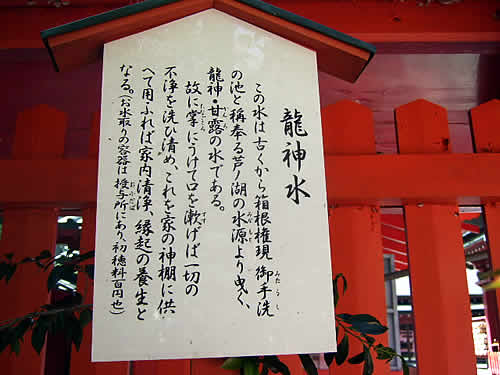 龍神水
この水は古くから箱根権現 御手洗
の池と称奉る芦ノ湖の水源より曳く、
龍神・甘露の水である。
故に掌にうけて口を漱げば一切の
不浄を洗ひ清め、これを家の神棚に供
へて用ふれば家内清浄、縁起の養生と
なる。(お水取りの容器は授与所にあり初穂料百円也)